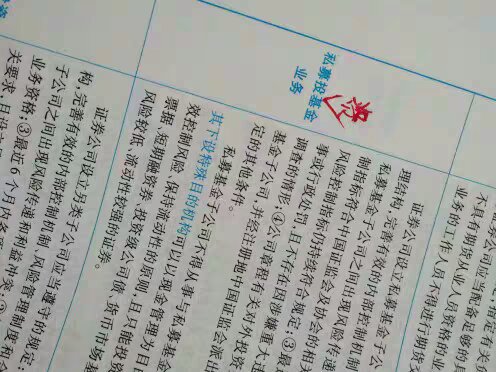 不具有期货从业人员资格的业
业务的工作人员不得进行期货
私募投基金
业务
证券公司设立私募基金子公
理结构,完善有效的内部控制机制
私募基金子公司之间出现风险传递
制指标符合中国证监会及协会的相关
风险控制指标仍持续符合规定;③最
事或行政处罚,且不存在因涉嫌重大违
调查的情形;④公司章程有关对外投资
基金子公司,并经注册地中国证监会派出
定的其他条件。
私募基金子公司不得从事与私募基金
其下设特殊目的机构可以以现金管理为目
效控制风险、保持流动性的原则,且只能投资
票据、短期融资券、投资级公司债、货币市场基
风险较低、流动性较强的证券。
证券公司设立另类子公司应当遵守的规定:
构,完善有效的内部控制机制、风险管理制度和合
子公司之间出现风险传递和利益冲突;②
业务资格;③最近6个月内各
关要求,且设立